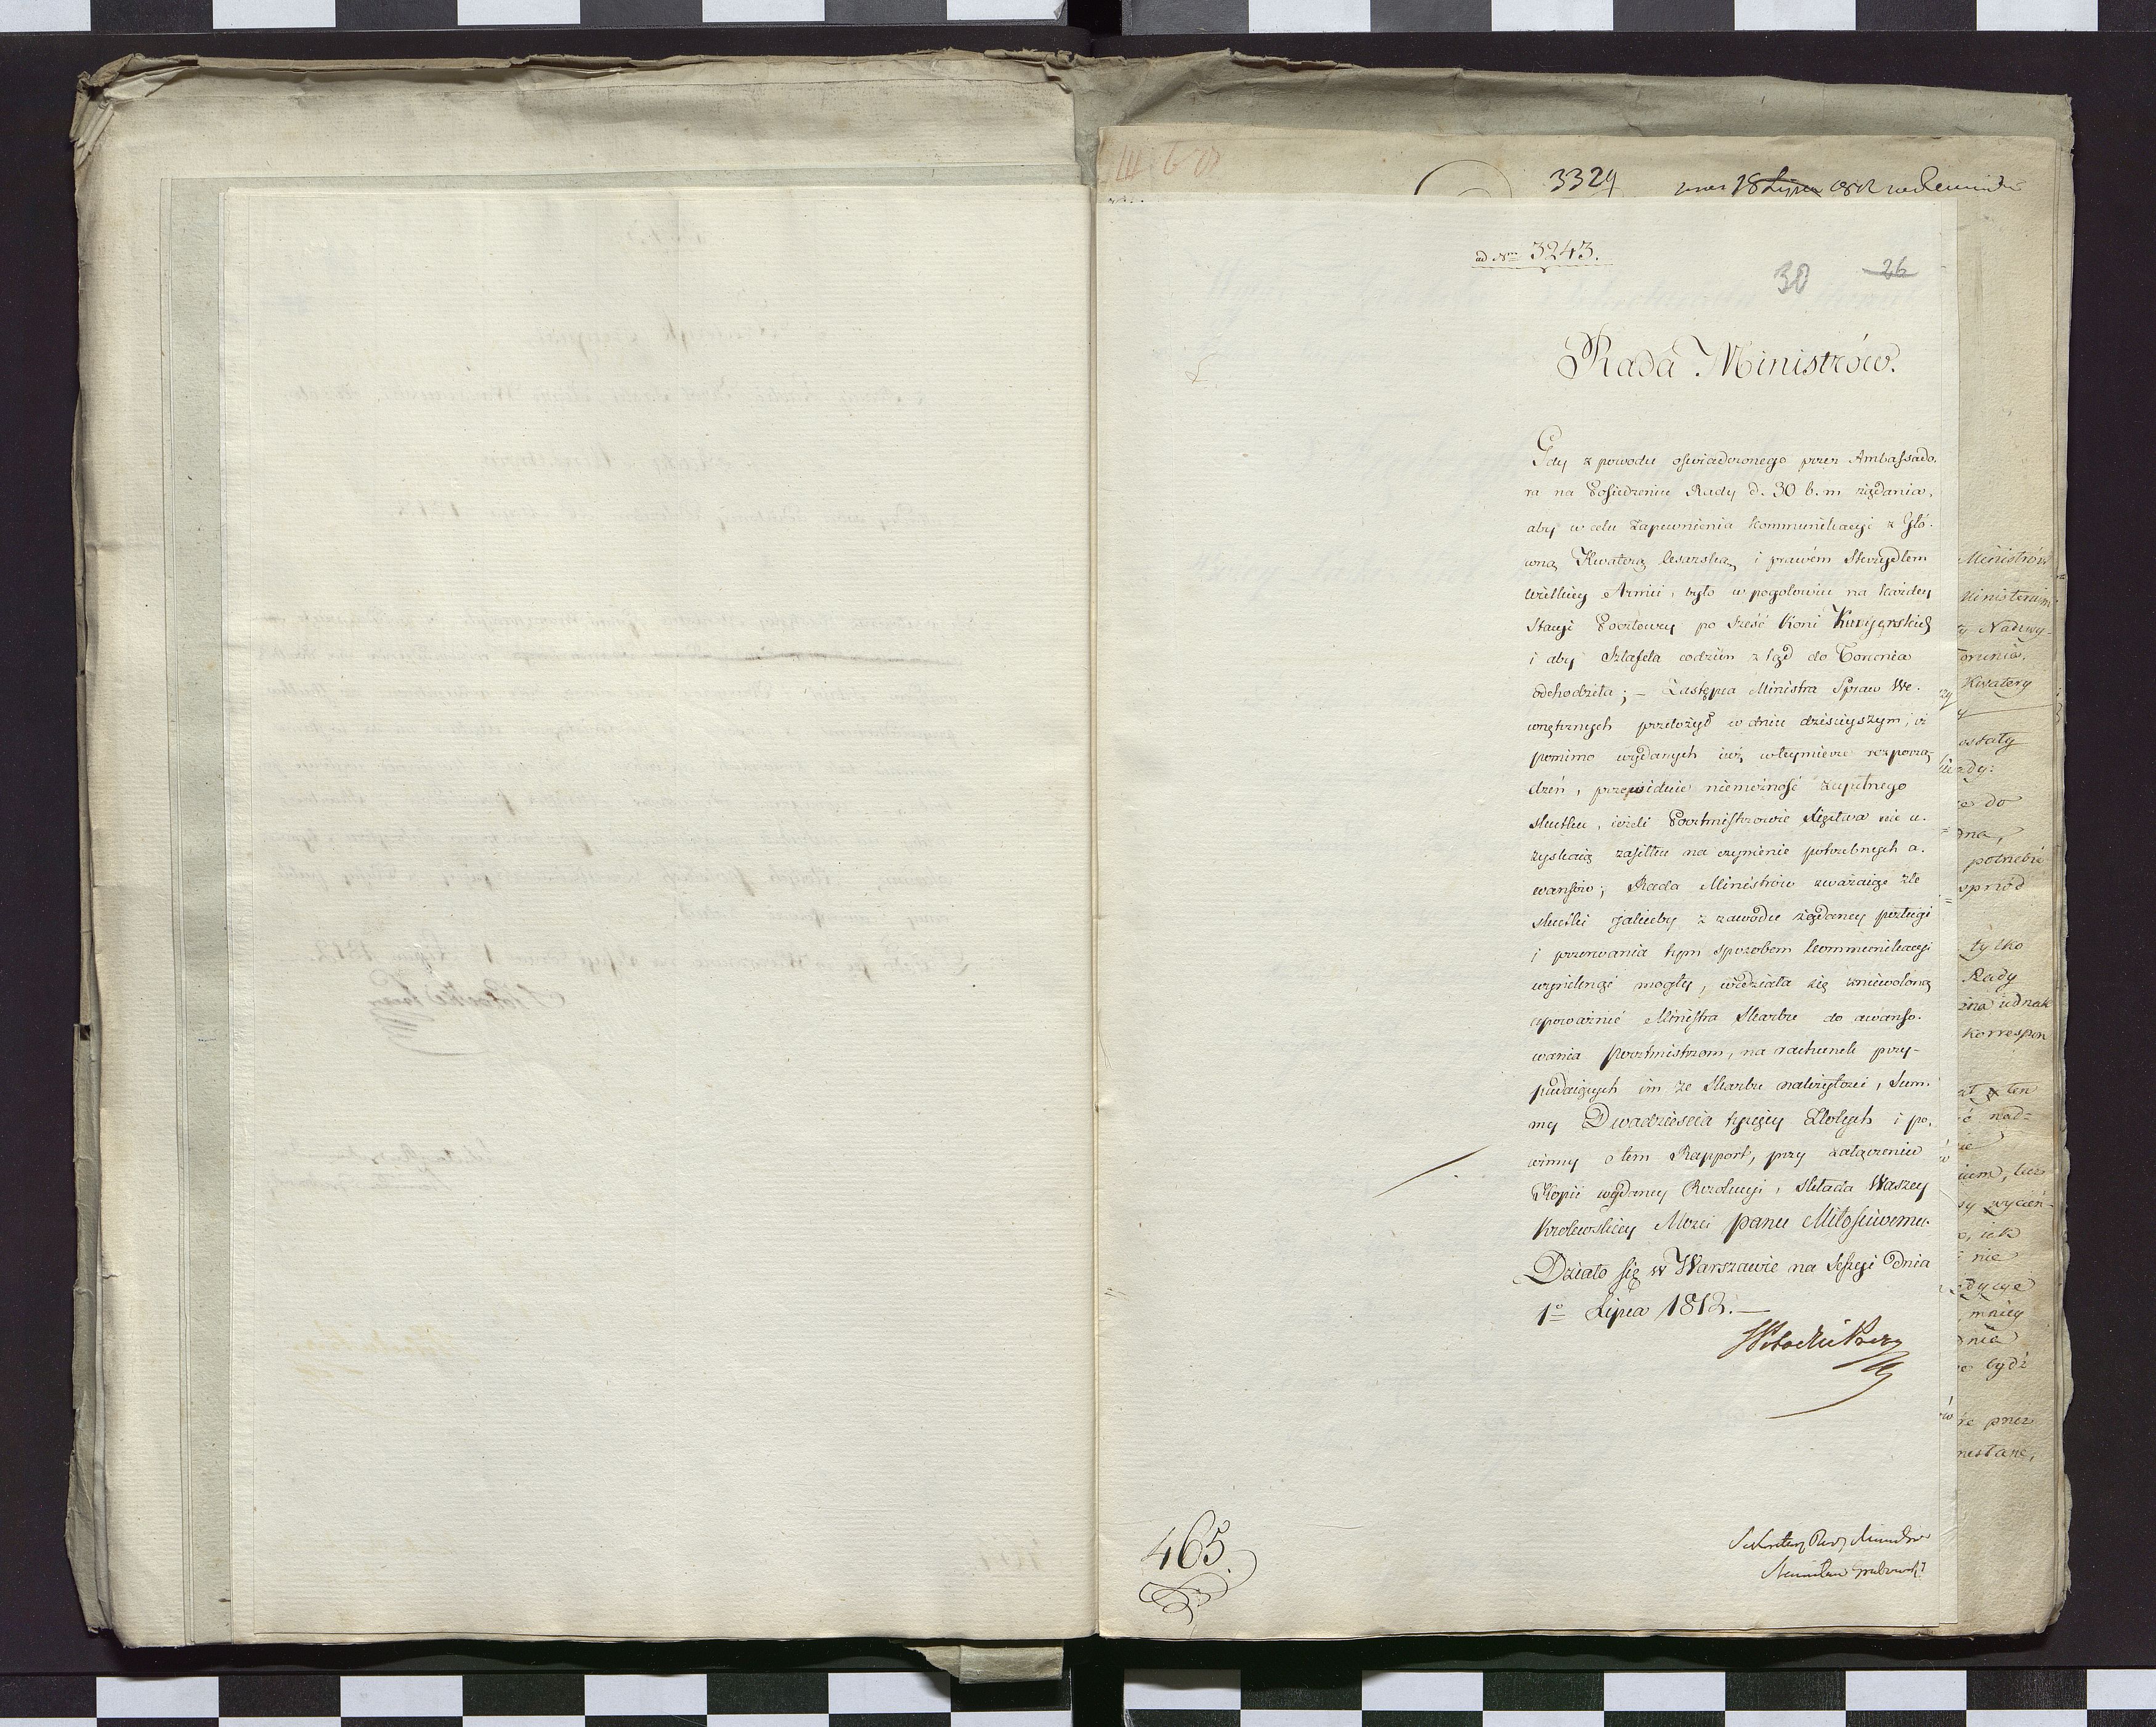 3324
ad Nrm 3243.
30 26
Rada Ministrów.
Gdy z powodu oświadczonego przez Ambassado.
ra na Posiedzeniu Rady d. 30 b. m. żądania,
aby w celu zapewnienia kommunikacyi z Głó.
wną Kwaterą Cesarską i prawém Skrzydłem
wielkiey Armii, było w pogotowiu na każdey
Stacyi Pocztowey po sześć Koni Kuryerskich
i aby Sztafeta codzień z tąd do Torunia
odchodziła; – Zastępca Ministra Spraw We.
wnętrznych przełożył w dniu dzisieyszym, iż
pomimo wydanych iuż w teymierze rozporzą-
dzeń, przewiduie niemożność zupełnego
skutku, ieżeli Pocztmistrzowie Xięstwa nie u.
zyskaią zasiłku na czynienie potrzebnych a.
wansów; Rada Ministrów zważaiąc złe
skutki jakieby z zawodu żądaney posługi
i przerwania tym sposobem kommunikacyi
wyniknąć mogły, widziała się zniewoloną
upoważnić Ministra Skarbu do awanso.
wania Pocztmistrzom, na rachunek przy-
padaiących im ze Skarbu należytości, Sum.
my Dwadzieścia tysięcy Złotych i po.
winny o tem Rapport, przy załączeniu
Kopii wydaney Rezolucyi, składa Waszey
Krolewskiey Mości panu Miłościwemu.
Działo się w Warszawie na Sessyi dnia
1o Lipca 1812. —
Sekretarz Rady Ministrów
Stanisław Grabowski
465.
Ministrów
Kwatery
zostały
do
potrzebie
tylko
Rady
korrespon
ten
nad=
nie
mniey
dnia
być
przez